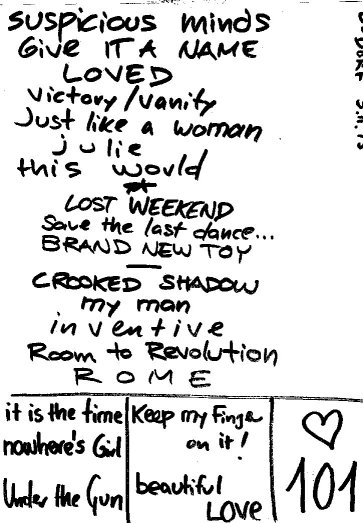 suspicious minds
GIVE IT A NAME
LOVED
victory/vanity
Just like a woman
julie
this world
LOST WEEKEND
Save the last dance...
BRAND NEW TOY
CROOKED SHADOW
my man
inventive
Room to Revolution
ROME
it is the time
nowhere's Girl
Under the Gun
Keep my Finger
on it!
beautiful
LOVE
101